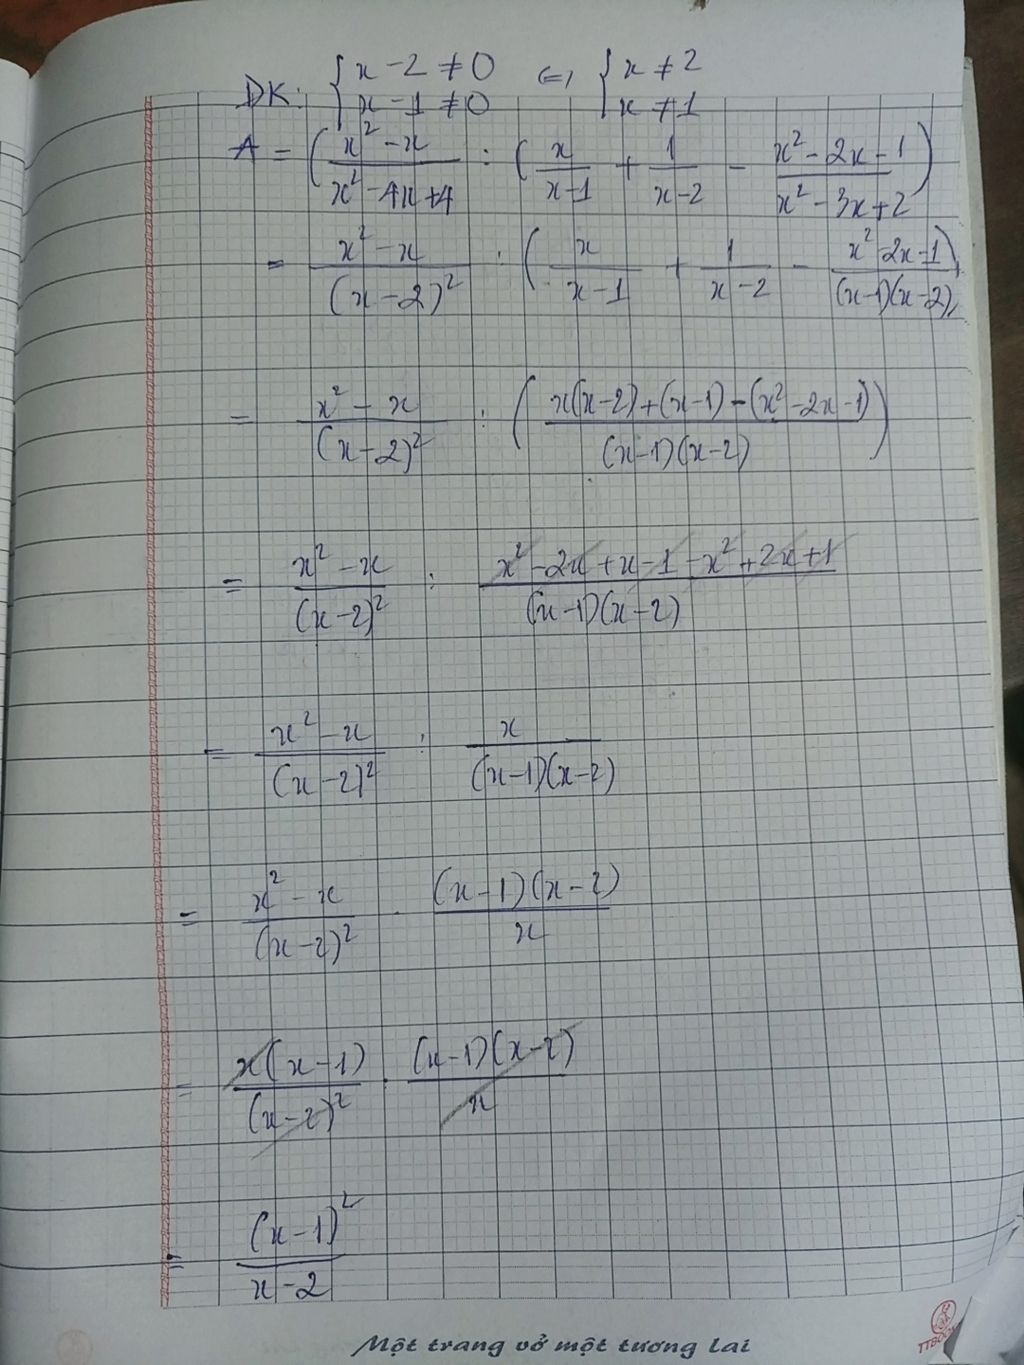 DK: { x - 2 ≠ 0 <=> { x ≠ 2
x - 1 ≠ 0 x ≠ 1
A = ( (x² - x)/(x² - 4x + 4) : ( x/(x-1) + 1/(x-2) - (x² - 2x - 1)/(x² - 3x + 2) )
= (x² - x)/(x - 2)² : ( x/(x - 1) + 1/(x - 2) - (x² - 2x - 1)/((x-1)(x-2)) )
= (x² - x)/(x - 2)² : ( (x(x-2) + (x-1) - (x² - 2x - 1))/((x-1)(x-2)) )
= (x² - x)/(x - 2)² : (x² - 2x + x - 1 - x² + 2x + 1)/((x-1)(x-2))
= (x² - x)/(x - 2)² : x/((x-1)(x-2))
= (x² - x)/(x - 2)² . ((x - 1)(x - 2))/x
= (x(x - 1))/(x - 2)² . ((x-1)(x-2))/x
= (x - 1)²/(x - 2)
Một trang vở một tương lai